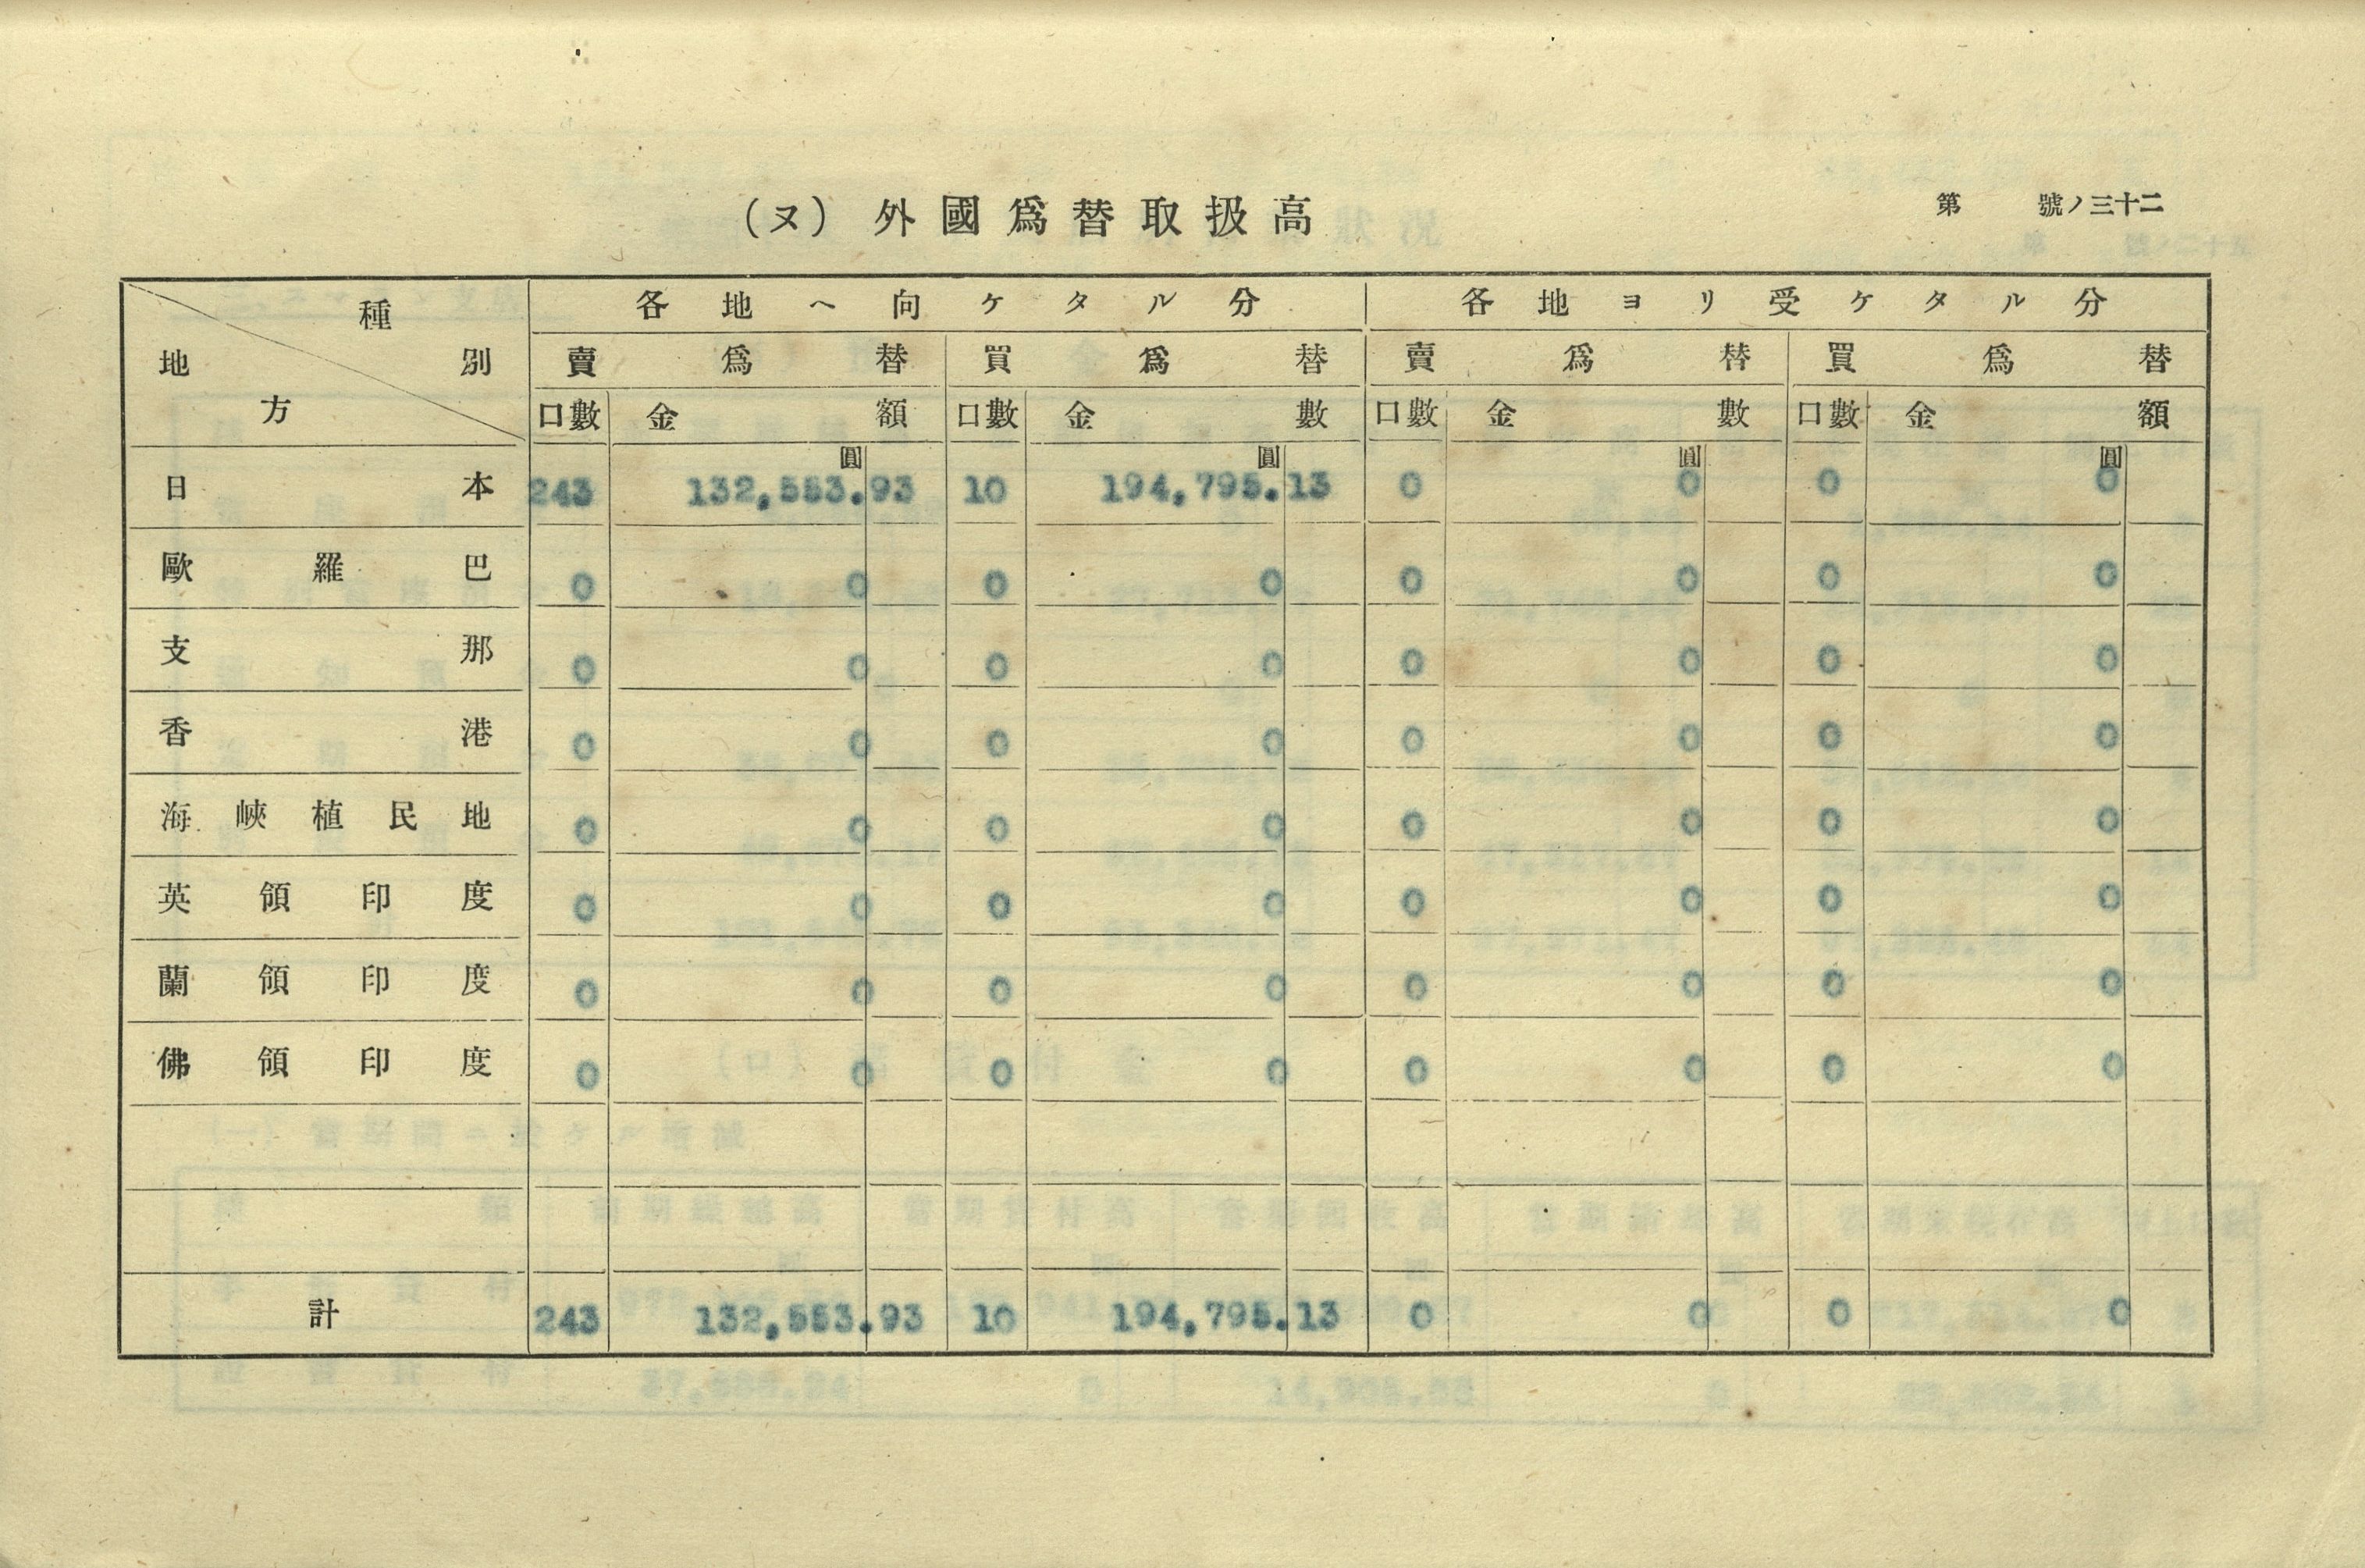 (ヌ) 外國爲替取扱高
第 號ノ三十二
種別 地方 各地ヘ向ケタル分 各地ヨリ受ケタル分
賣爲替 買爲替 賣爲替 買爲替
口數 金額 口數 金數 口數 金數 口數 金額
圓 圓 圓 圓
日本 243 132,553.93 10 194,795.13 0 0 0 0
歐羅巴 0 0 0 0 0 0 0 0
支那 0 0 0 0 0 0 0 0
香港 0 0 0 0 0 0 0 0
海峽植民地 0 0 0 0 0 0 0 0
英領印度 0 0 0 0 0 0 0 0
蘭領印度 0 0 0 0 0 0 0 0
佛領印度 0 0 0 0 0 0 0 0
計 243 132,553.93 10 194,795.13 0 0 0 0